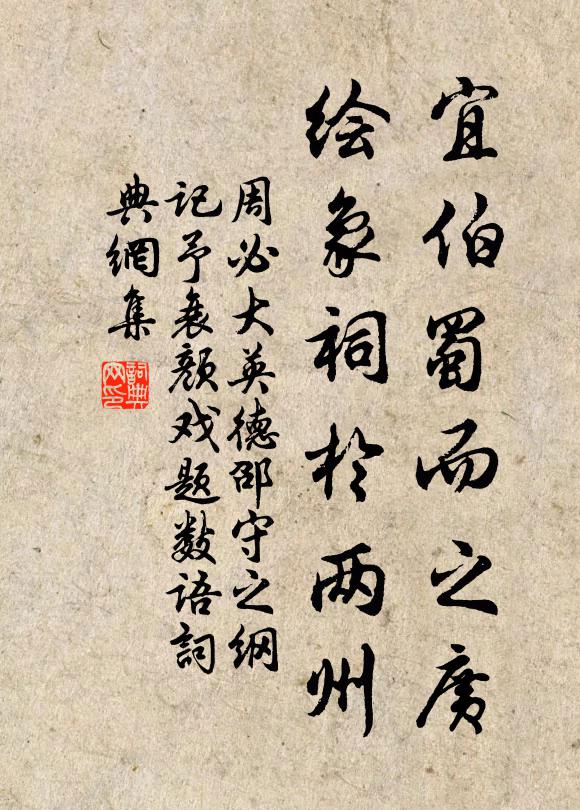 宜伯蜀而之广
绘象祠於两州
周必大英德邵守之纲
记予衰颜戏题数语词
典網集
詞典网印